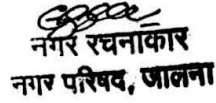 नगर रचनाकार
नगर परिषद, जालना